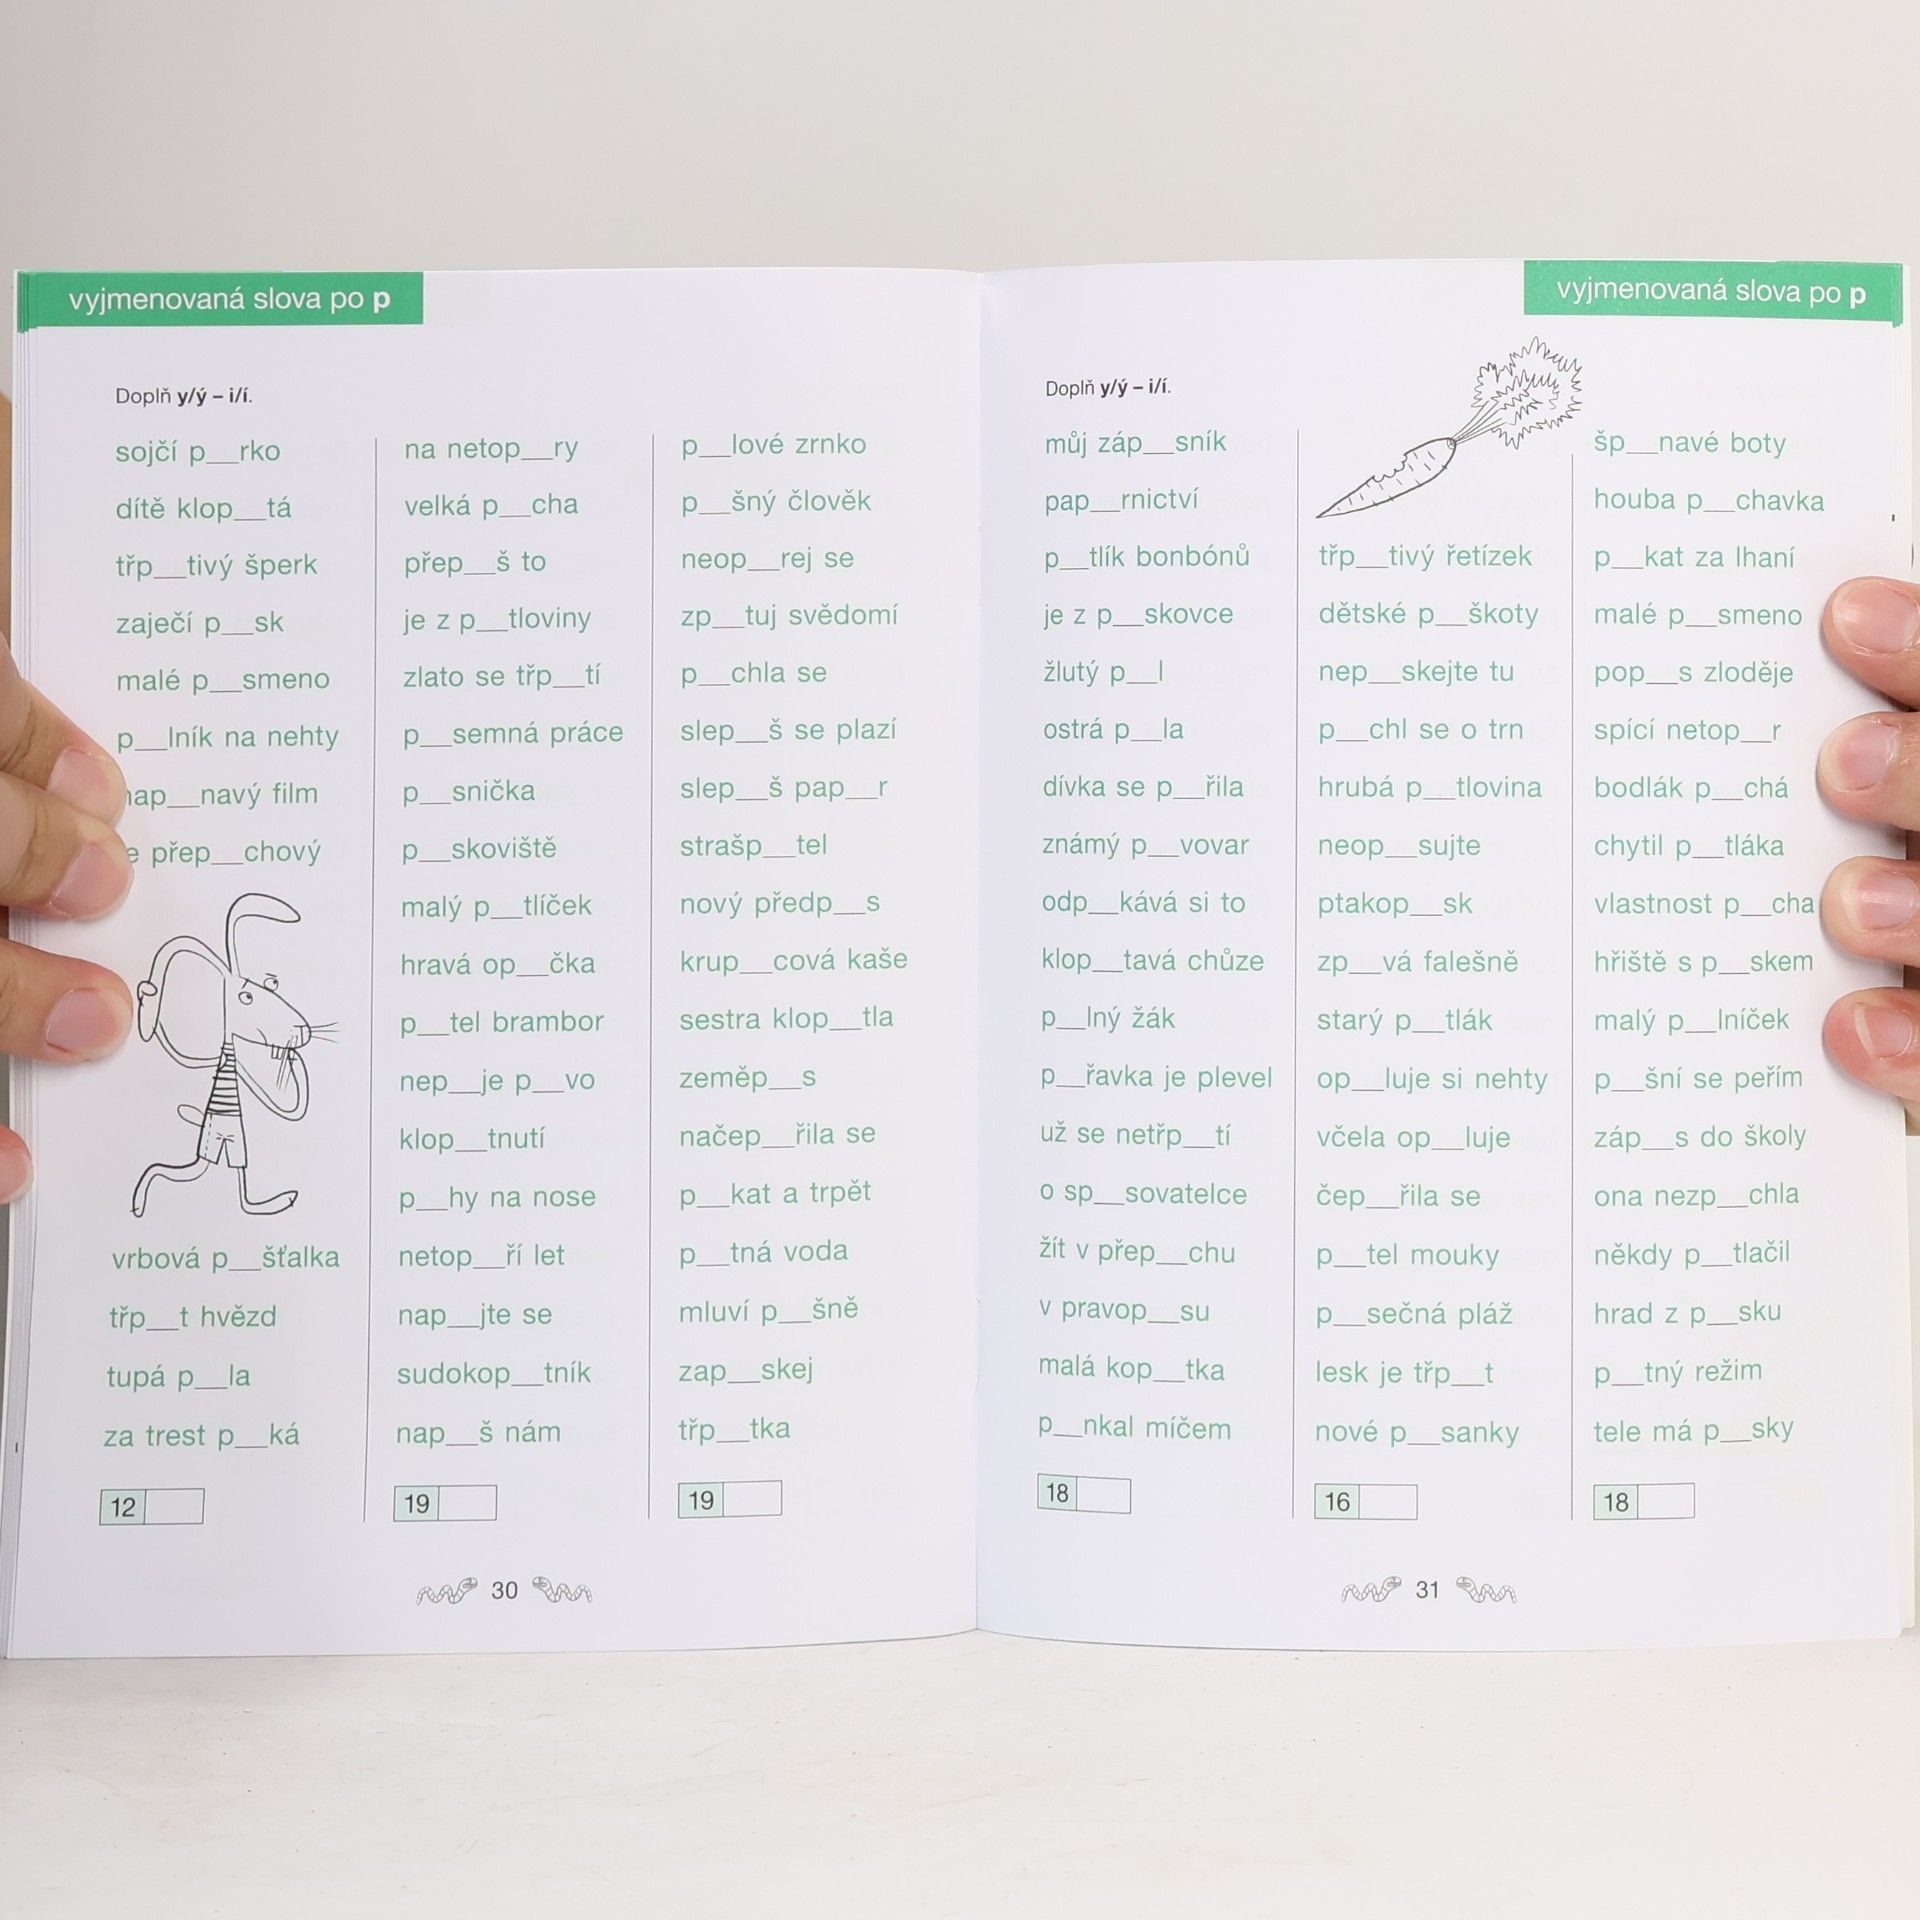 vyjmenovaná slova po p
Doplň y/ý – i/í.
sojčí p__rko
dítě klop__tá
třp__tivý šperk
zaječí p__sk
malé p__smeno
p__lník na nehty
p__navý film
přep__chový
vrbová p__šťalka
třp__t hvězd
tupá p__la
za trest p__ká
12
na netop__ry
velká p__cha
přep__š to
je z p__tloviny
zlato se třp__tí
p__semná práce
p__snička
p__skoviště
malý p__tlíček
hravá op__čka
p__tel brambor
nep__je p__vo
klop__tnutí
p__hy na nose
netop__ří let
nap__jte se
sudokop__tník
nap__š nám
19
p__lové zrnko
p__šný člověk
neop__rej se
zp__tuj svědomí
p__chla se
slep__š se plazí
slep__š pap__r
strašp__tel
nový předp__s
krup__cová kaše
sestra klop__tla
zeměp__s
načep__řila se
p__kat a trpět
p__tná voda
mluví p__šně
zap__skej
třp__tka
19
30
vyjmenovaná slova po p
Doplň y/ý – i/í.
můj záp__sník
pap__rnictví
p__tlík bonbónů
je z p__skovce
žlutý p__l
ostrá p__la
dívka se p__řila
známý p__vovar
odp__kává si to
klop__tavá chůze
p__lný žák
p__řavka je plevel
už se netřp__tí
o sp__sovatelce
žít v přep__chu
v pravop__su
malá kop__tka
p__nkal míčem
18
třp__tivý řetízek
dětské p__škoty
nep__skejte tu
p__chl se o trn
hrubá p__tlovina
neop__sujte
ptakop__sk
zp__vá falešně
starý p__tlák
op__luje si nehty
včela op__luje
čep__řila se
p__tel mouky
p__sečná pláž
lesk je třp__t
nové p__sanky
16
šp__navé boty
houba p__chavka
p__kat za lhaní
malé p__smeno
pop__s zloděje
spící netop__r
bodlák p__chá
chytil p__tláka
vlastnost p__cha
hřiště s p__skem
malý p__lníček
p__šní se peřím
záp__s do školy
ona nezp__chla
někdy p__tlačil
hrad z p__sku
p__tný režim
tele má p__sky
18
31